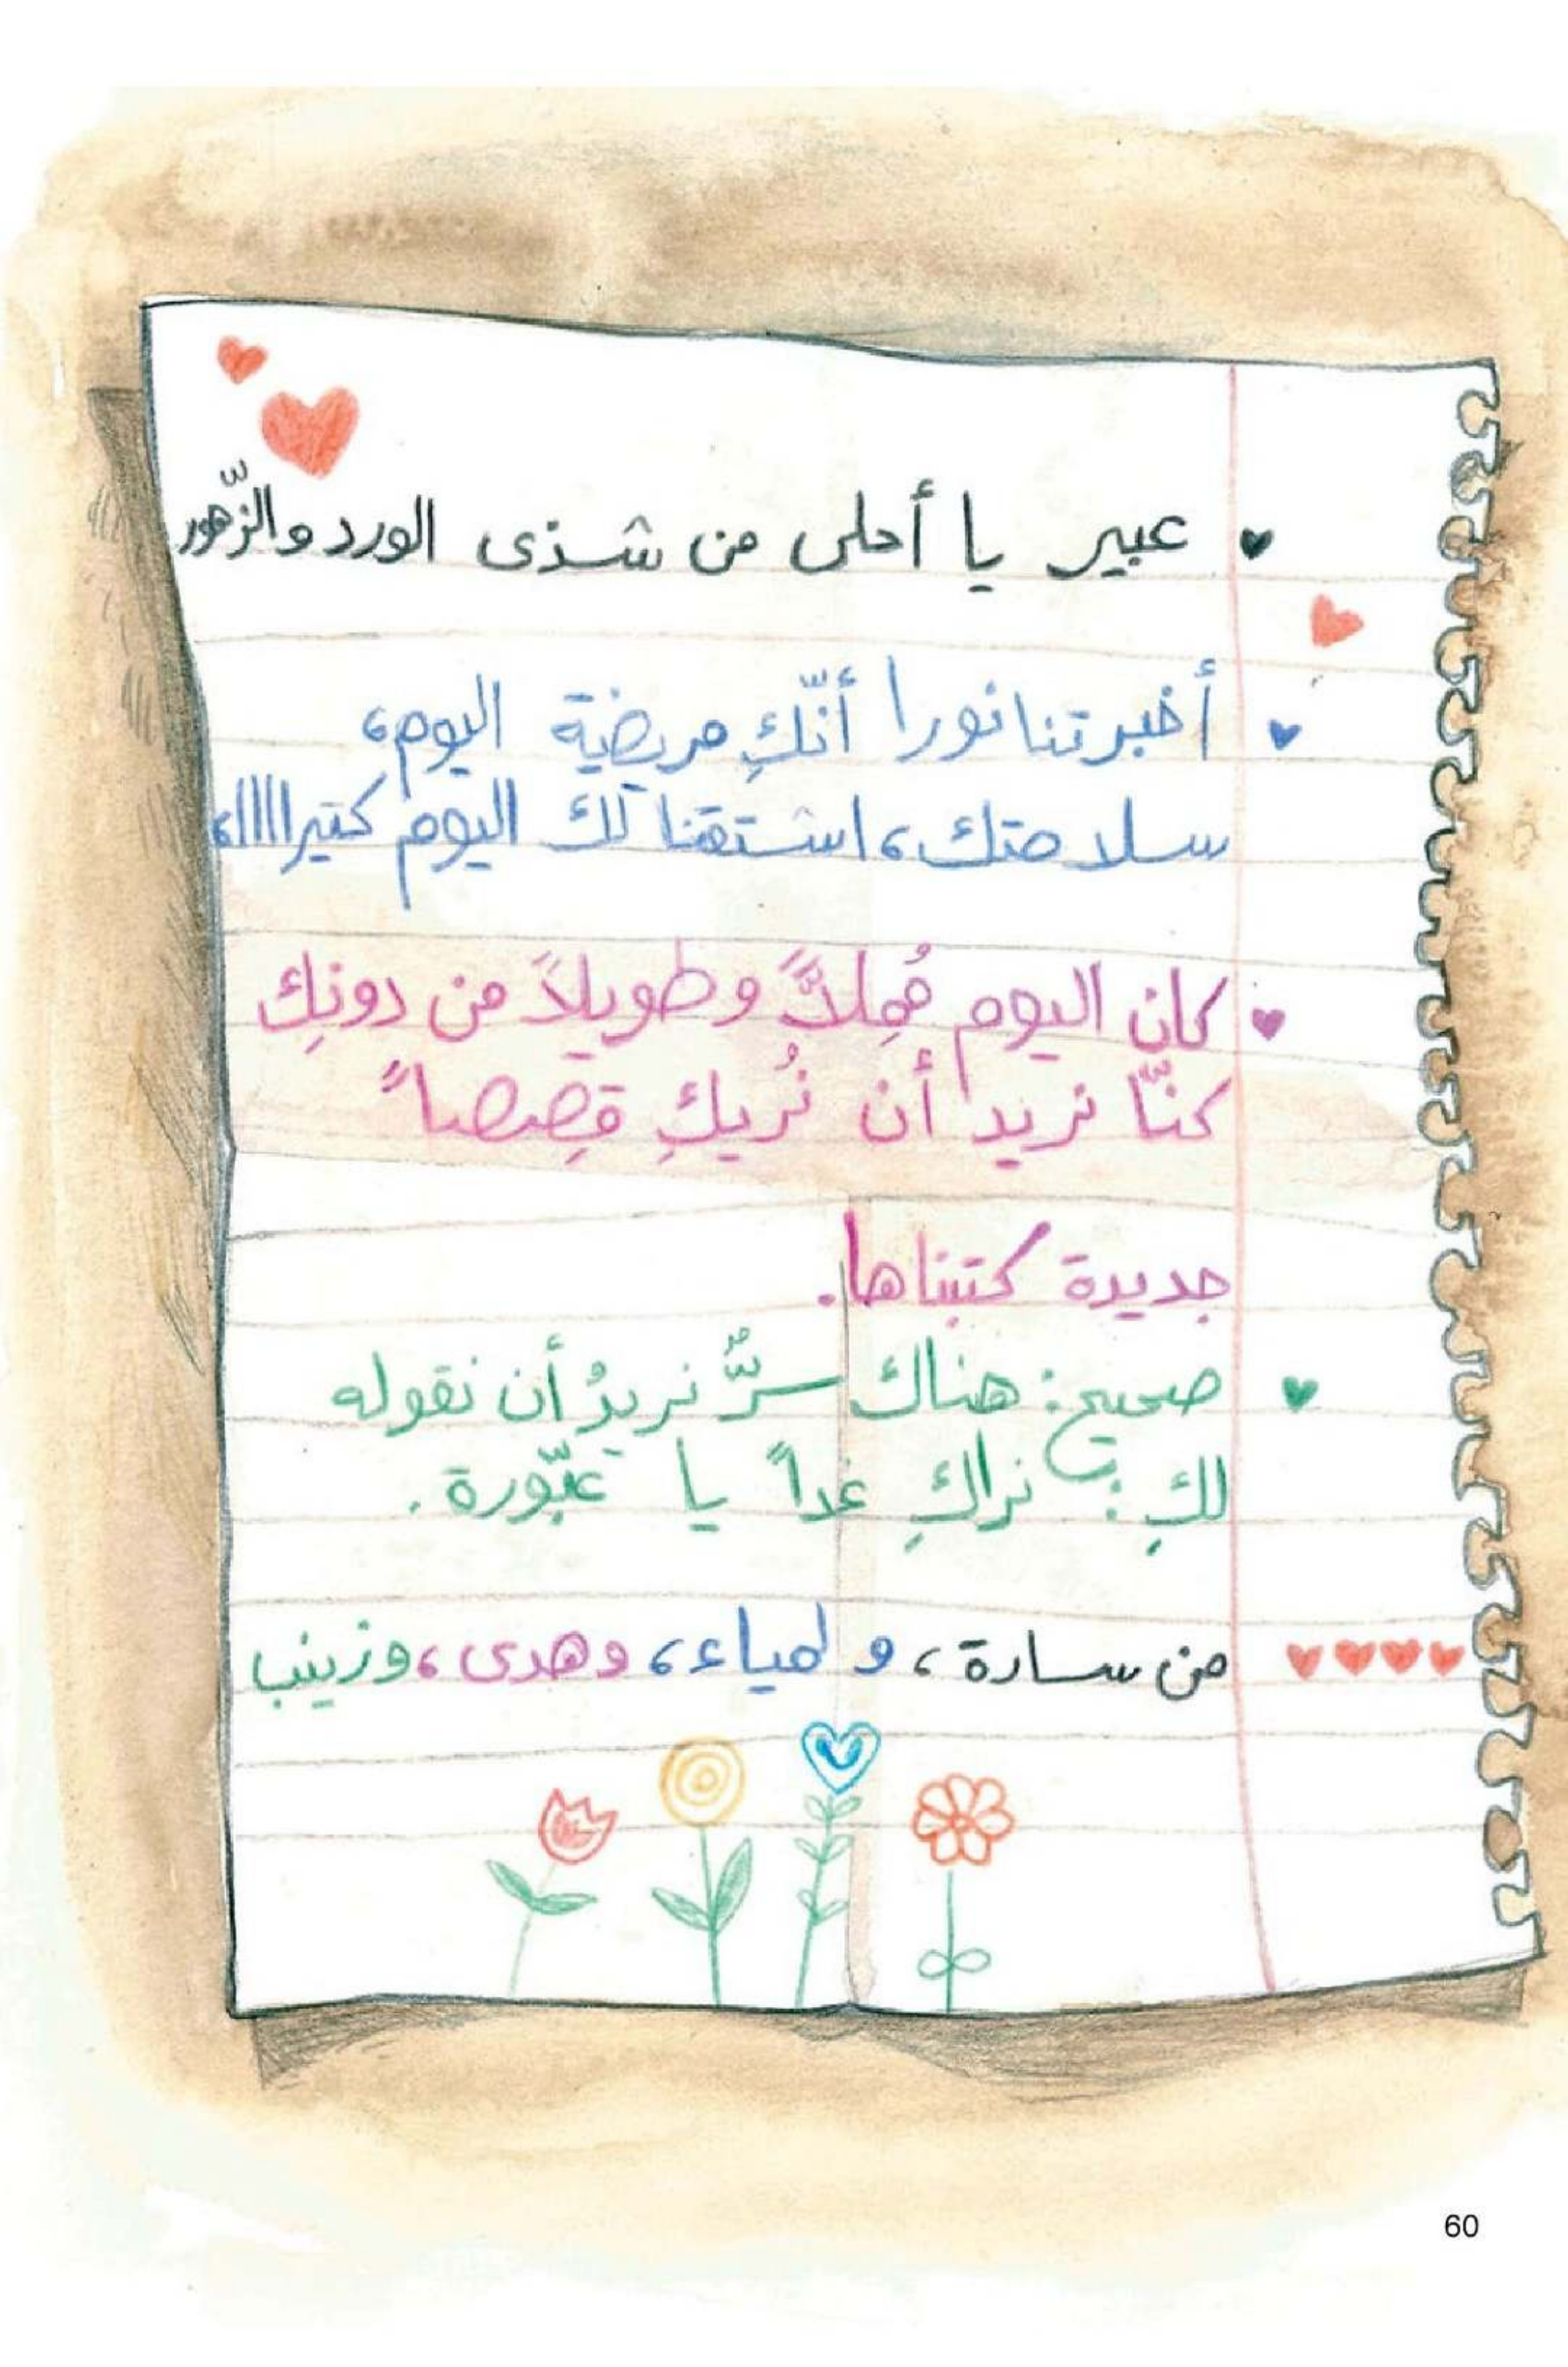 عبير يا أحلى من شذى الورد والزّهور
أخبرتنا نورا أنّكِ مريضة اليوم،
سلامتك، اشتقنا لك اليوم كتيراااا،
كان اليوم مُمِلاًّ وطويلاً من دونِك
كنّا نريد أن نُريكِ قِصصاً
جديدة كتبناها.
صحيح: هناك سرٌّ نريدُ أن نقوله
لكِ: نراكِ غداً يا عبّورة.
من سارة، و لمياء، وهدى، وزينب
60